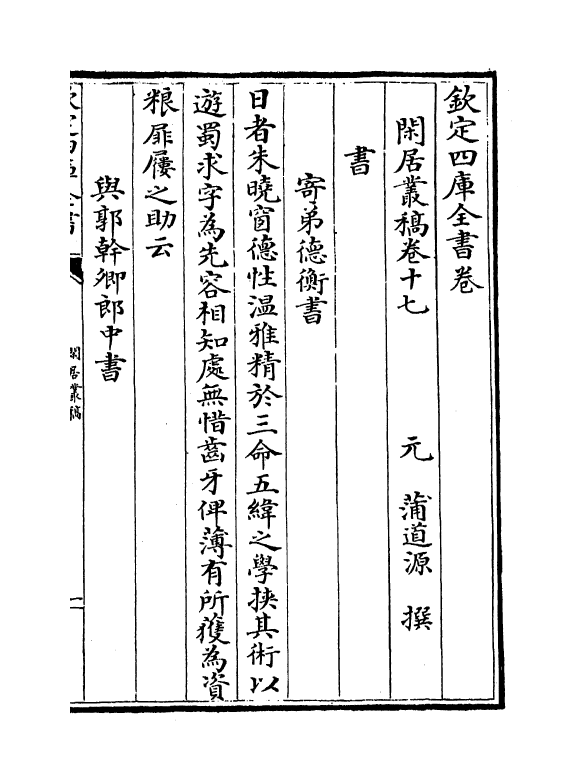 欽定四庫全書卷
閑居叢稿卷十七
元 蒲道源 撰
書
寄弟德衡書
日者朱曉窗德性温雅精於三命五緯之學挾其術以
遊蜀求字為先容相知處無惜齒牙俾薄有所獲為資
粮屝屨之助云
與郭幹卿郎中書
欽定四庫全書
閑居叢稿
一